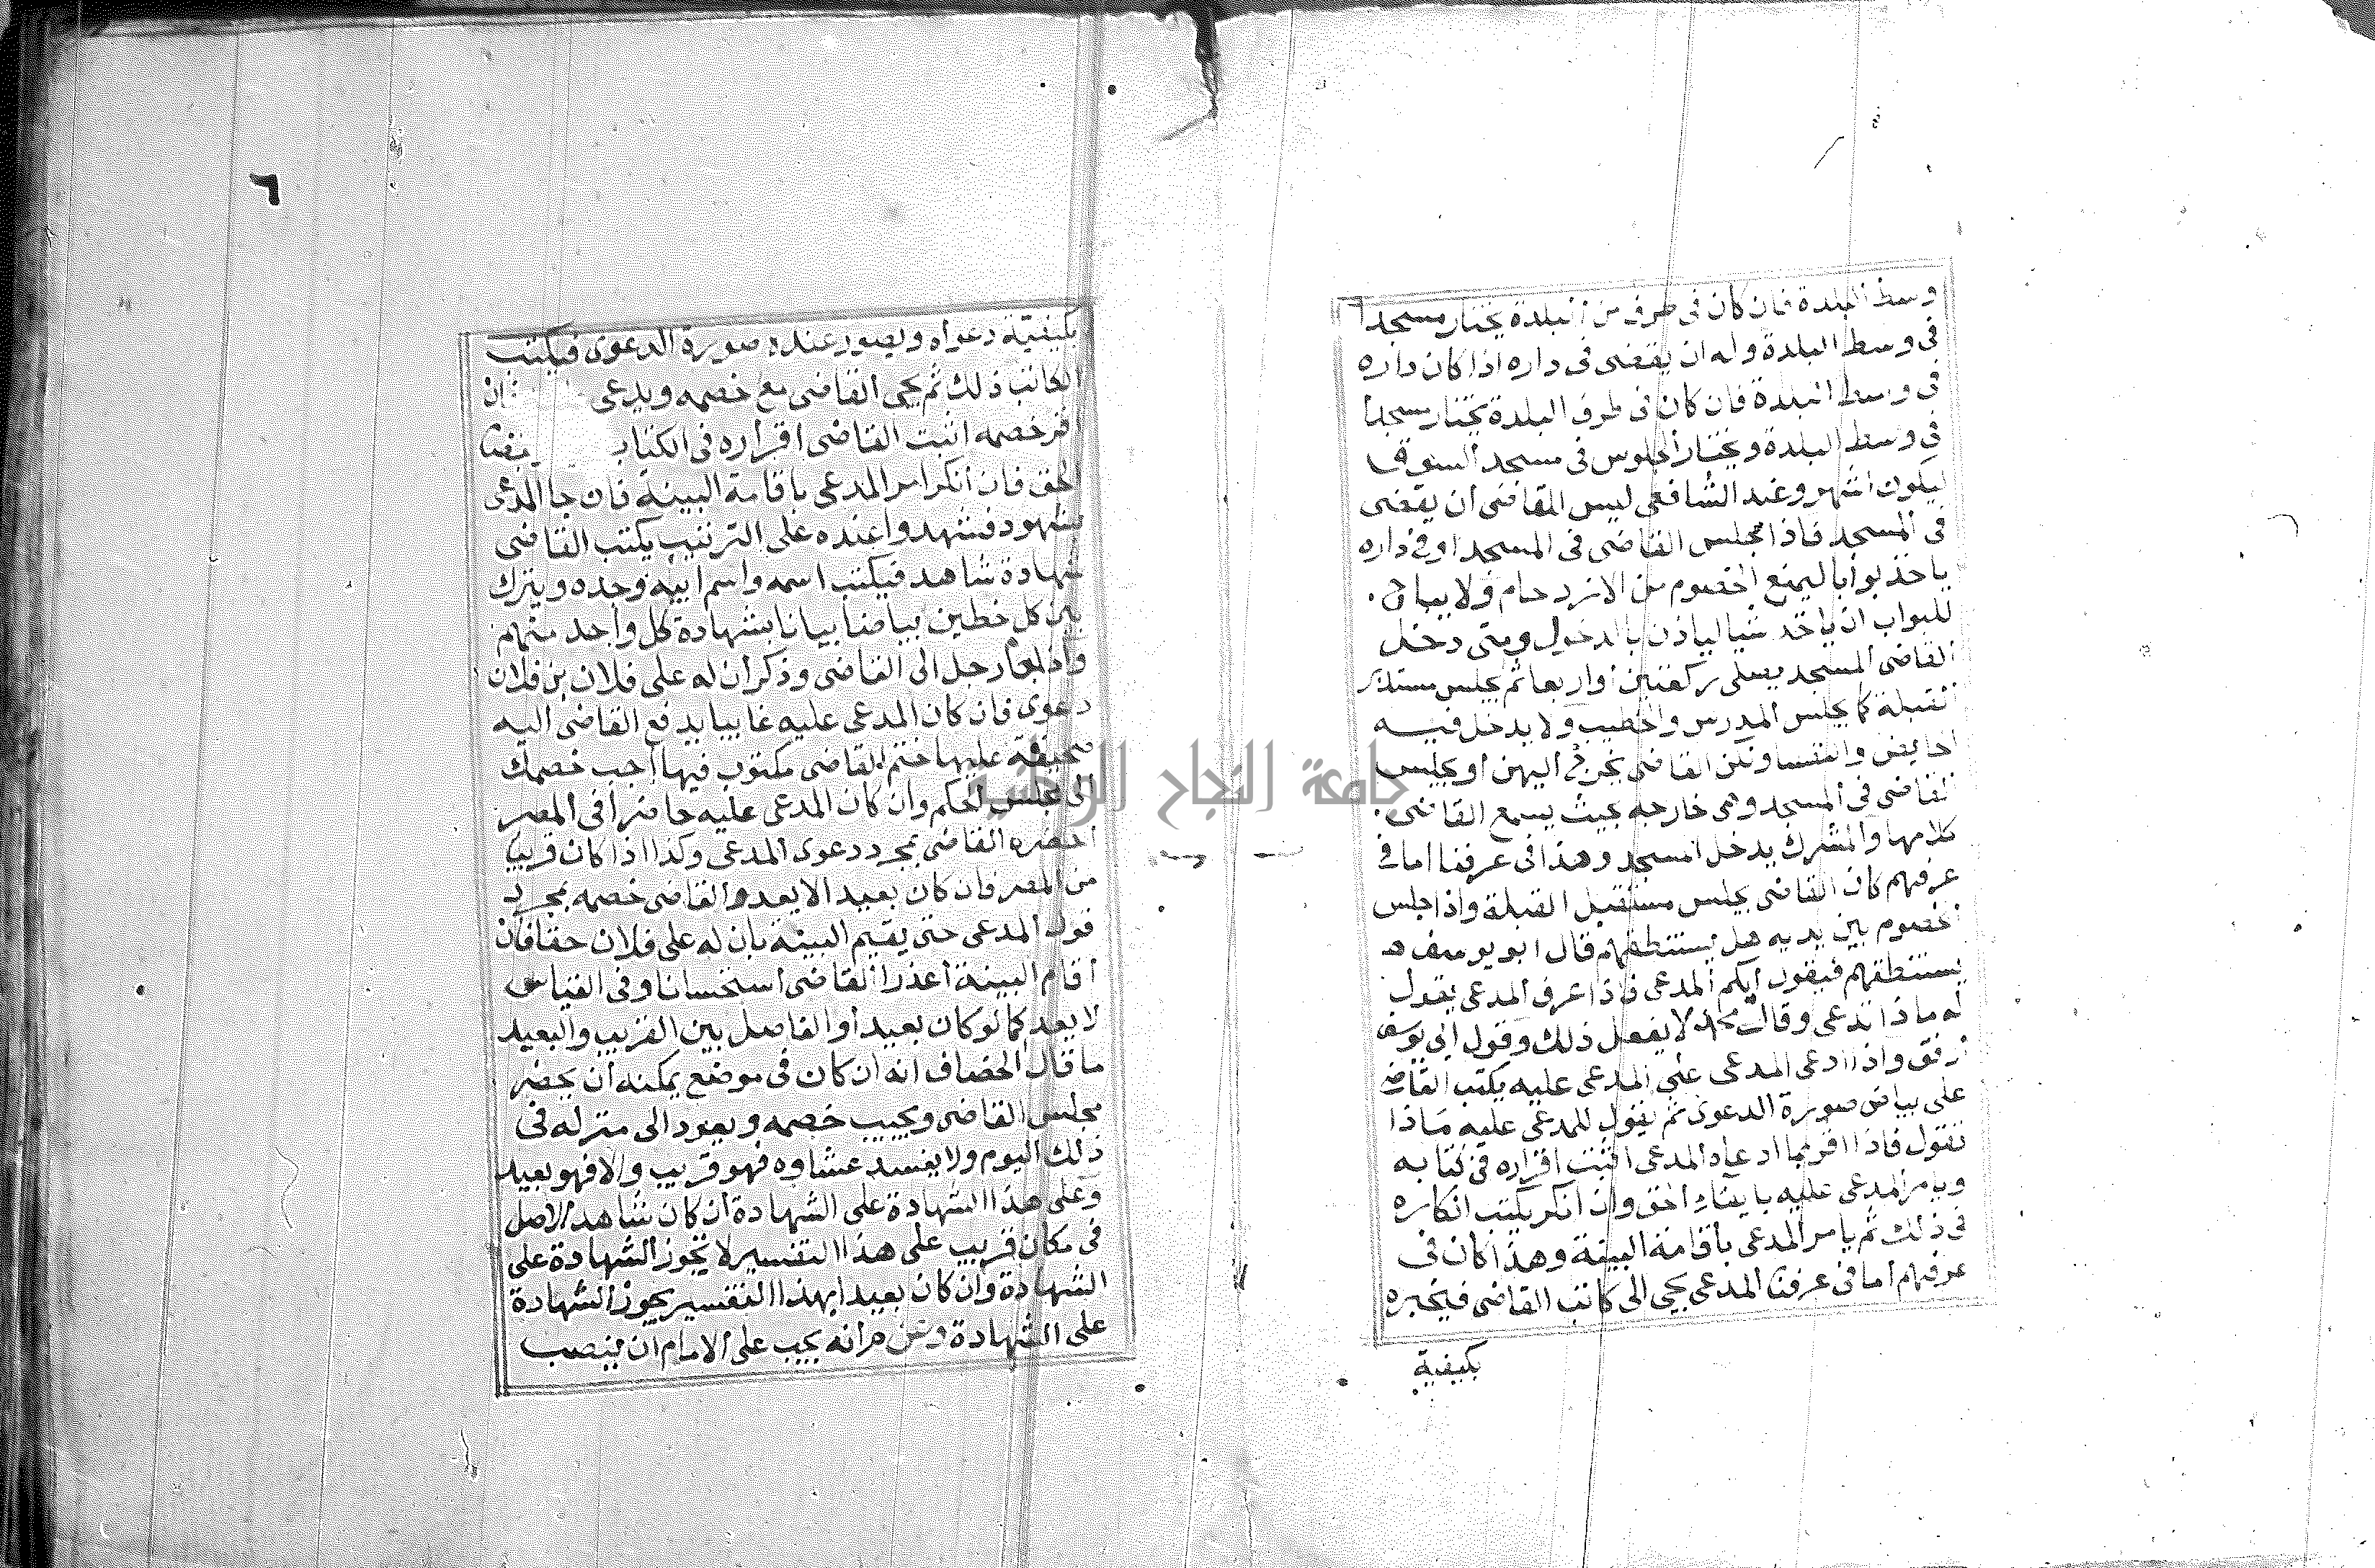 وسط البلدة فان كان فى طرف من البلدة يختار مسجدا
فى وسط البلدة وله ان يقضى فى داره اذا كان داره
فى وسط البلدة فان كان فى طرف البلدة يختار مسجدا
فى وسط البلدة ويختار الجلوس فى مسجد السوق
ليكون اشهر وعند الشافعى ليس للقاضى ان يقضى
فى المسجد فاذا جلس القاضى فى المسجد او فى داره
ياخذ بوابا ليمنع الخصوم من الازدحام ولا يباح
للبواب ان ياخذ شيا لياذن بالدخول ومتى دخل
القاضى المسجد يصلى ركعتين او اربعا ثم يجلس مستدبر
القبلة كما يجلس المدرس والخطيب ولا يدخل فيه
الحايض والنفسا ولكن القاضى يخرج اليهن او يجلس
القاضى فى المسجد وهى خارجه بحيث يسمع القاضى
كلامها والمشرك يدخل المسجد وهذا فى عرفنا اما فى
عرفهم كان القاضى يجلس مستقبل القبلة واذا جلس
الخصوم بين يديه هل يستنطقهم قال ابو يوسف
يستنطقهم فيقول ايكم المدعى فاذا عرف المدعى يقول
له ماذا تدعى وقال محمد لا يفعل ذلك وقول ابى يوسف
ارفق واذا ادعى المدعى على المدعى عليه يكتب القاضى
على بياض صورة الدعوى ثم يقول للمدعى عليه ماذا
تقول فاذا اقر بما ادعاه المدعى اثبت اقراره فى كتابه
ويامر المدعى عليه بايفاء الحق وان انكر يكتب انكاره
فى ذلك ثم يامر المدعى باقامة البينة وهذا كان فى
عرفهم اما فى عرفنا المدعى يجى الى كاتب القاضى فيخبره
بكيفية
٦
بكيفية دعواه ويصور عنده صورة الدعوى فيكتب
الكاتب ذلك ثم يجى القاضى مع خصمه ويدعى ان
اقر خصمه اثبت القاضى اقراره فى الكتاب
الحق فان انكر امر المدعى باقامة البينة فان جا المدعى
بشهود فشهدوا عنده على الترتيب يكتب القاضى
شهادة شاهد فيكتب اسمه واسم ابيه وجده ويترك
بين كل خطين بياضا بيانا بشهادة كل واحد منهم
واذا جا رجل الى القاضى وذكر ان له على فلان بن فلان
دعوى فان كان المدعى عليه غايبا يدفع القاضى اليه
صحيفة عليها ختم القاضى مكتوب فيها اجب خصمك
الى مجلس الحكم وان كان المدعى عليه حاضرا فى المصر
احضره القاضى بمجرد دعوى المدعى وكذا اذا كان قريبا
من المصر فان كان بعيدا لا يعد والقاضى خصمه بمجرد
قول المدعى حتى يقيم البينة بان له على فلان حقا فان
اقام البينة اعذر القاضى استحسانا وفى القياس
لا يعد كما لو كان بعيدا والفاصل بين القريب والبعيد
ما قال الخصاف انه ان كان فى موضع يمكنه ان يحضر
مجلس القاضى ويجيب خصمه ويعود الى منزله فى
ذلك اليوم ولا يفسد عشاوه فهو قريب والا فهو بعيد
وعلى هذا الشهادة على الشهادة ان كان شاهد الاصل
فى مكان قريب على هذا التفسير لا تجوز الشهادة على
الشهادة وان كان بعيدا بهذا التفسير يجوز الشهادة
على الشهادة انه يجب على الامام ان ينصب
جامعة النجاح الوطنية